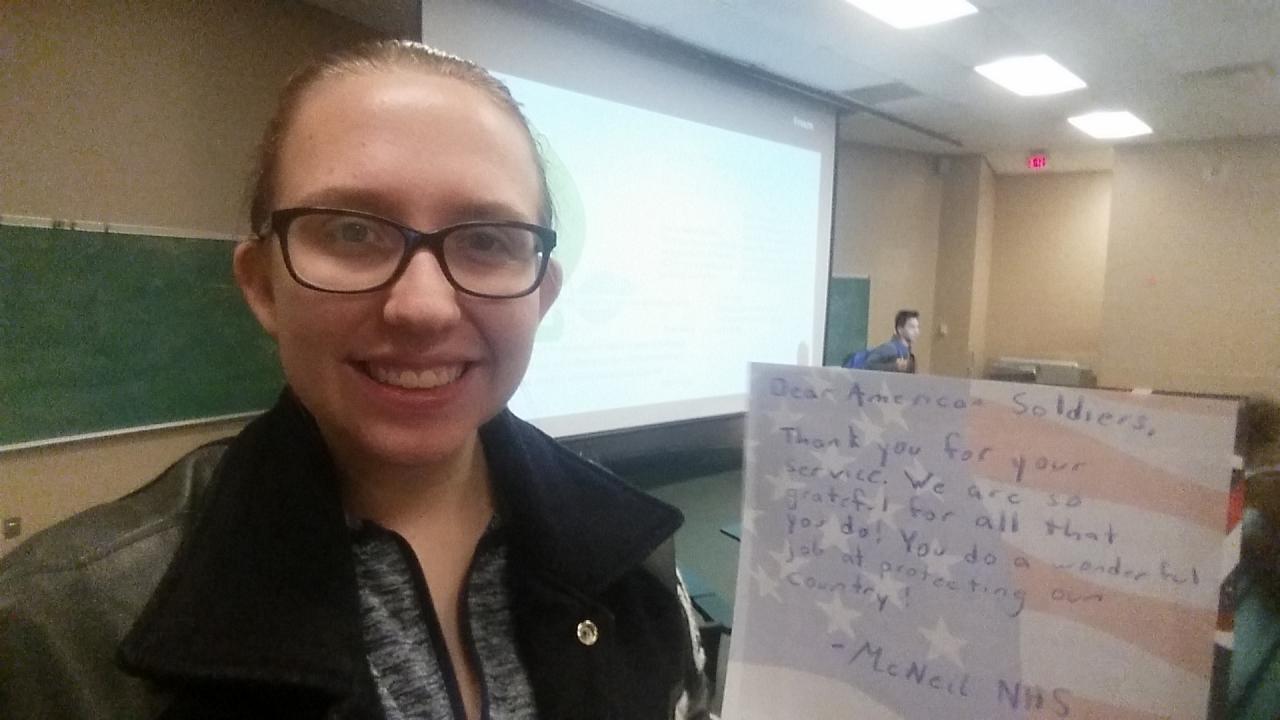 Dear American Soldiers,
Thank you for your
service. We are so
grateful for all that
you do! You do a wonderful
job at protecting our
country!
- McNeil NHS
EXIT